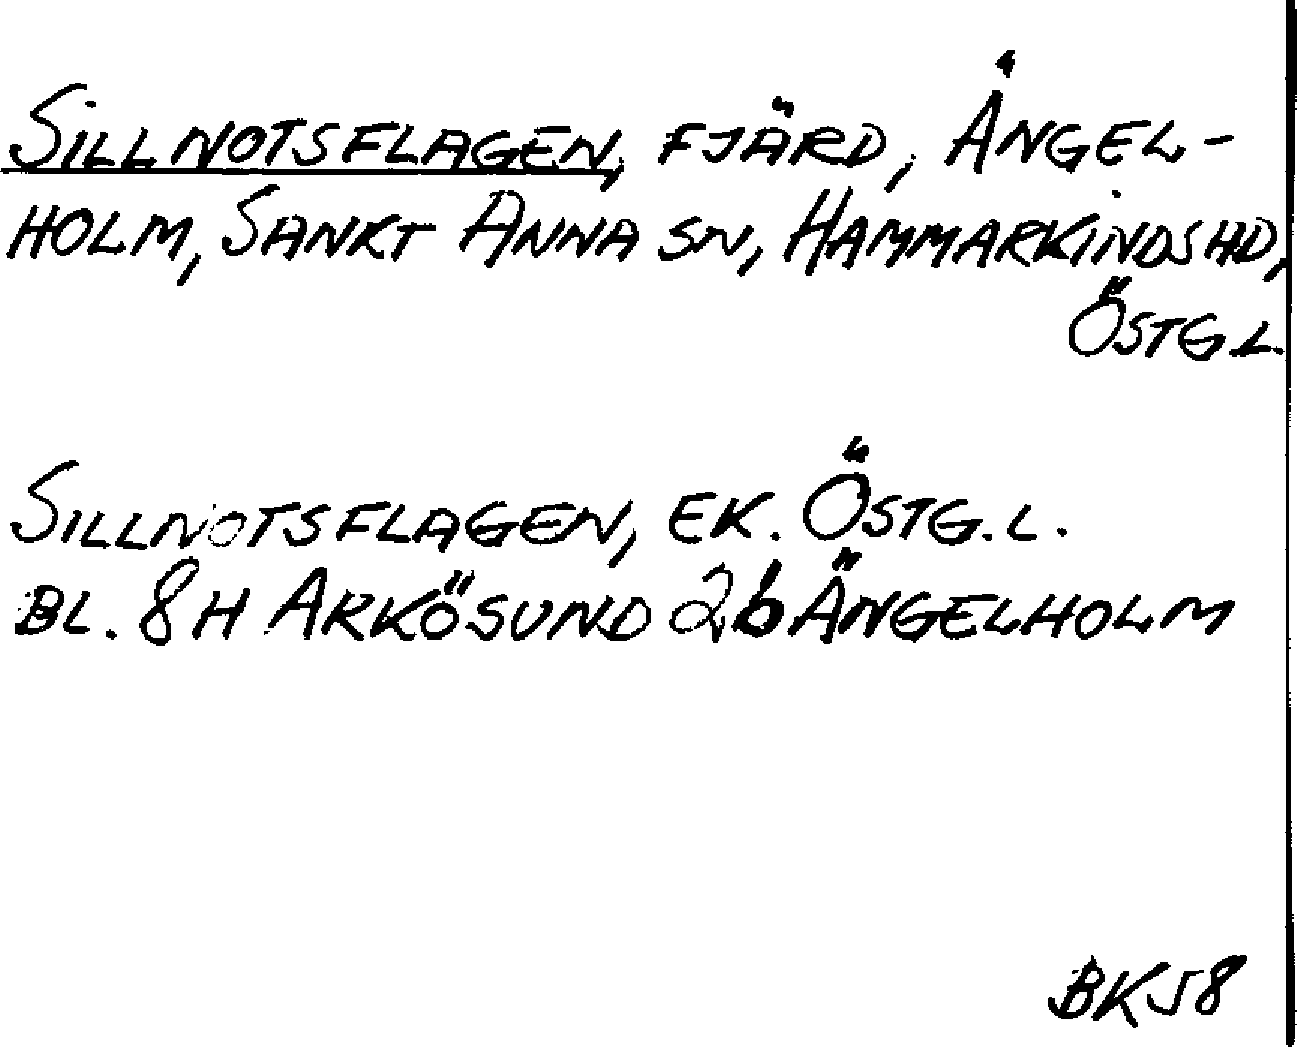 SILLNOTSFLAGEN, FJÄRD, ÄNGEL-
HOLM, SANKT ANNA SN, HAMMARKINDS HD,
ÖSTG L.
SILLNOTSFLAGEN, EK. ÖSTG. L.
BL. 8H ARKÖSUND 2b ÄNGELHOLM
BK58